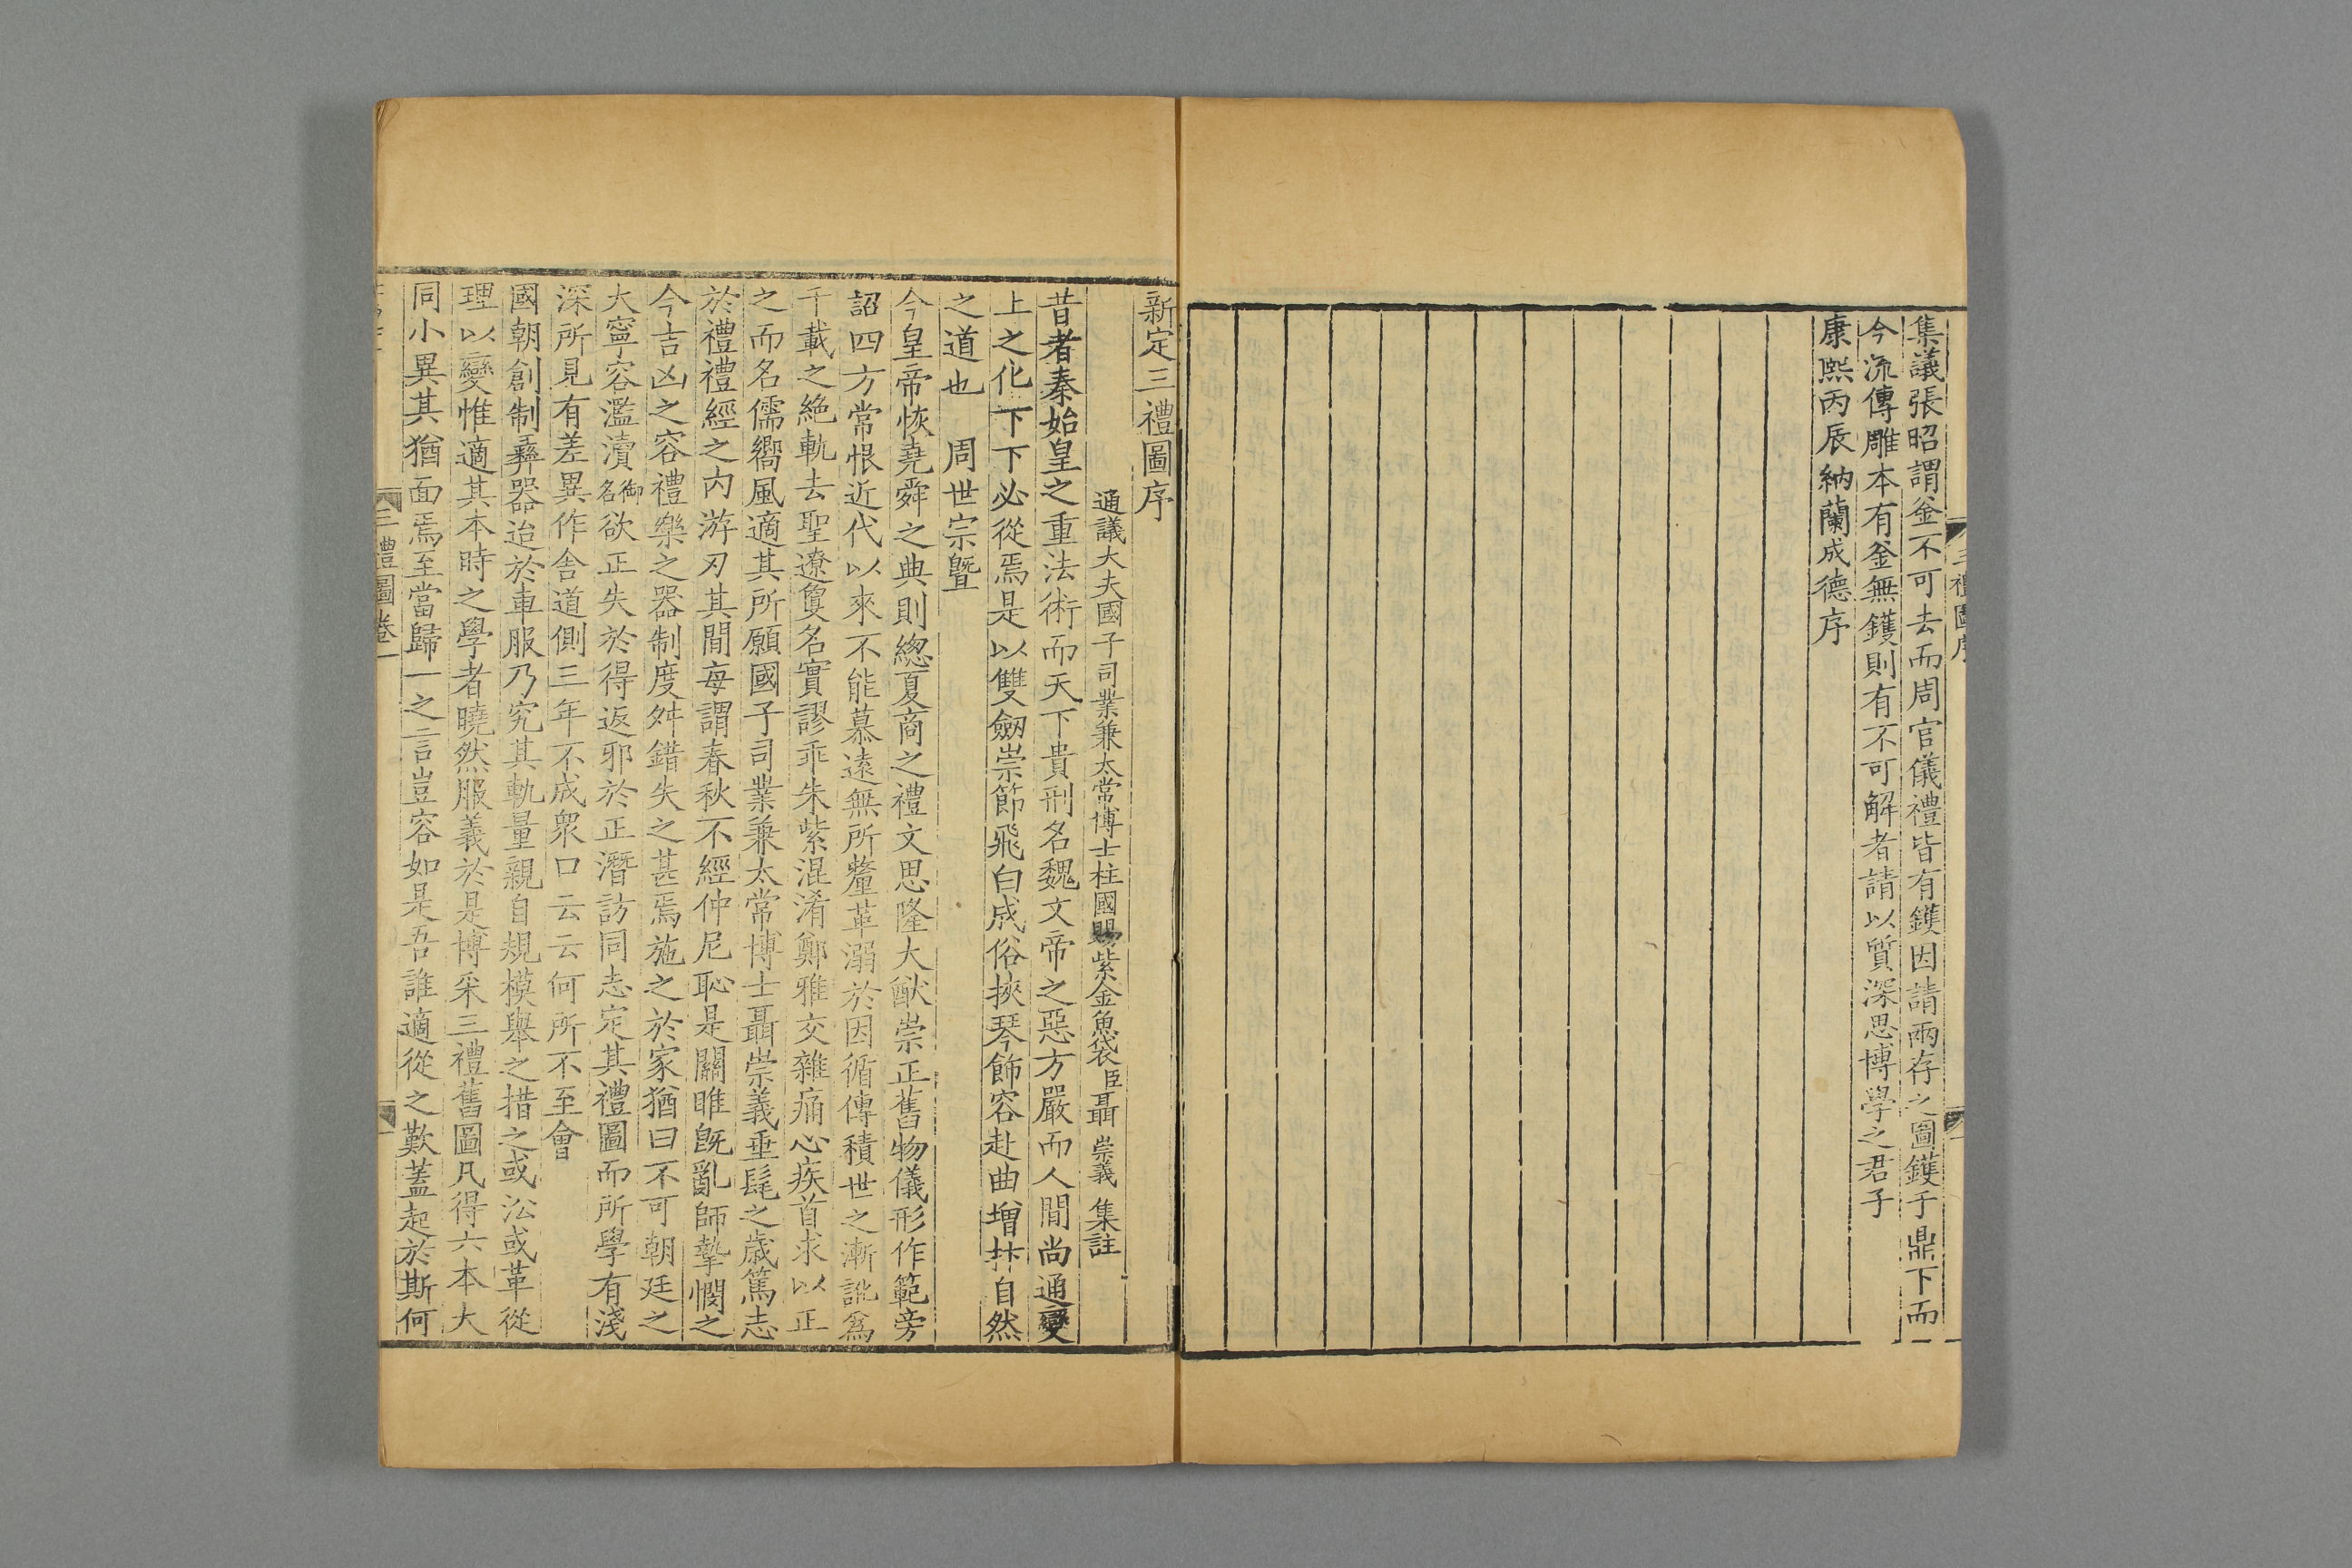 三禮圖序
集議張昭謂釜不可去而周官儀禮皆有鑊因請兩存之圖鑊于鼎下而
今流傳雕本有釜無鑊則有不可解者請以質深思博學之君子
康熙丙辰納蘭成德序
新定三禮圖序
通議大夫國子司業兼太常博士柱國賜紫金魚袋臣聶崇義集註
昔者秦始皇之重法術而天下貴刑名魏文帝之惡方嚴而人間尚通變
上之化下下必從焉是以雙劒崇節飛白成俗挾琴飾容赴曲增抃自然
之道也 周世宗曁
今皇帝恢堯舜之典則總夏商之禮文思隆大猷崇正舊物儀形作範旁
詔四方常恨近代以來不能慕遠無所釐革溺於因循傳積世之漸訛爲
千載之絶軌去聖遼夐名實謬乖朱紫混淆鄭雅交雜痛心疾首求以正
之而名儒嚮風適其所願國子司業兼太常博士聶崇義垂髦之歲篤志
於禮禮經之内游刃其間每謂春秋不經仲尼恥是關睢旣亂師摯憫之
今吉凶之容禮樂之器制度舛錯失之甚焉施之於家猶曰不可朝廷之
大寧容濫瀆御名欲正失於得返邪於正潛訪同志定其禮圖而所學有淺
深所見有差異作舎道側三年不成衆口云云何所不至會
國朝創制彝器迨於車服乃究其軌量親自規模舉之措之或沿或革從
理以變惟適其本時之學者曉然服義於是博采三禮舊圖凡得六本大
同小異其猶面焉至當歸一之言豈容如是吾誰適從之歎蓋起於斯何
三禮圖卷一